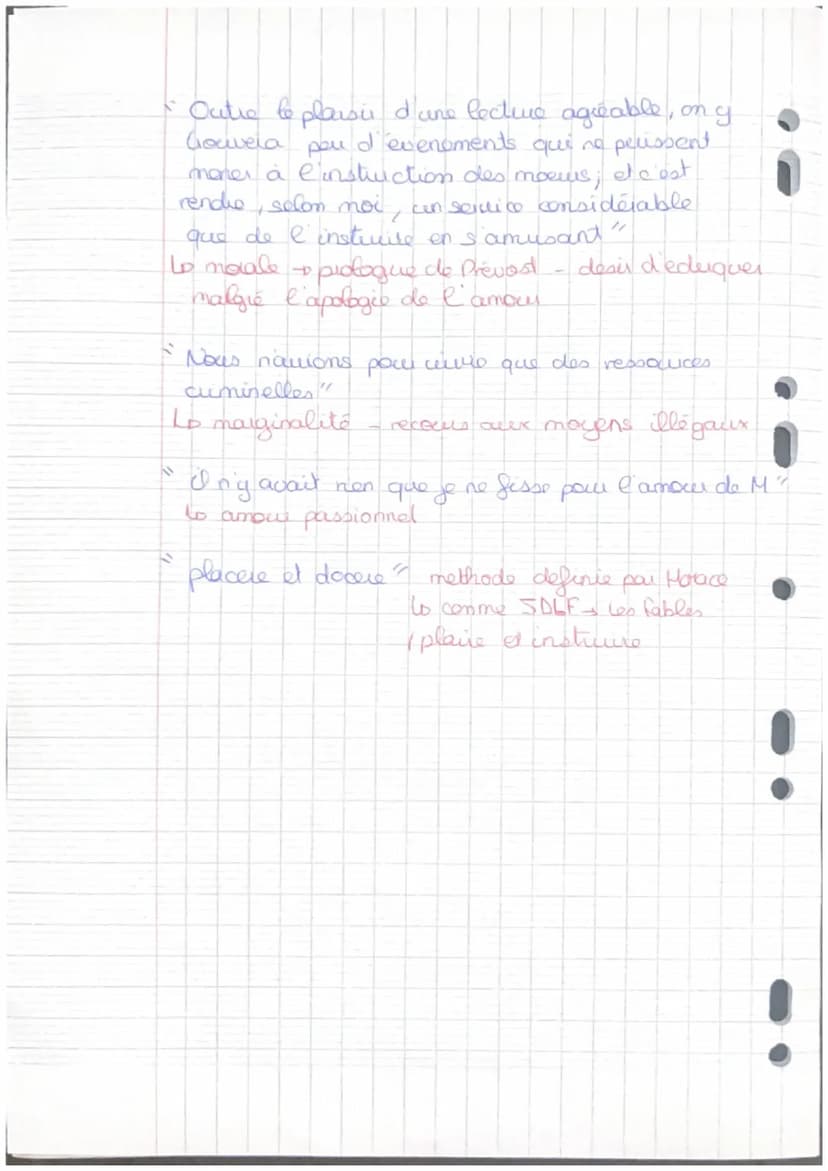 " Outre le plaisir d'une lecture agréable, on y
trouvera peu d'évenements qui ne puissent
mener à l'instruction des moeurs; et c'est
rendre, selon moi, un service considérable
que de l'instruire en s'amusant"
↳ morale → prologue de Prévost - désir d'eduquer
malgré l'apologie de l'amour
" Nous n'avions pour vivre que des ressources
criminelles"
↳ marginalité - recours aux moyens illégaux
" il n'y avait rien que je ne fisse pour l'amour de M"
↳ amour passionnel
" placere et docere" methode definie par Horace
↳ comme JDLF → Les fables
/ plaire et instruire